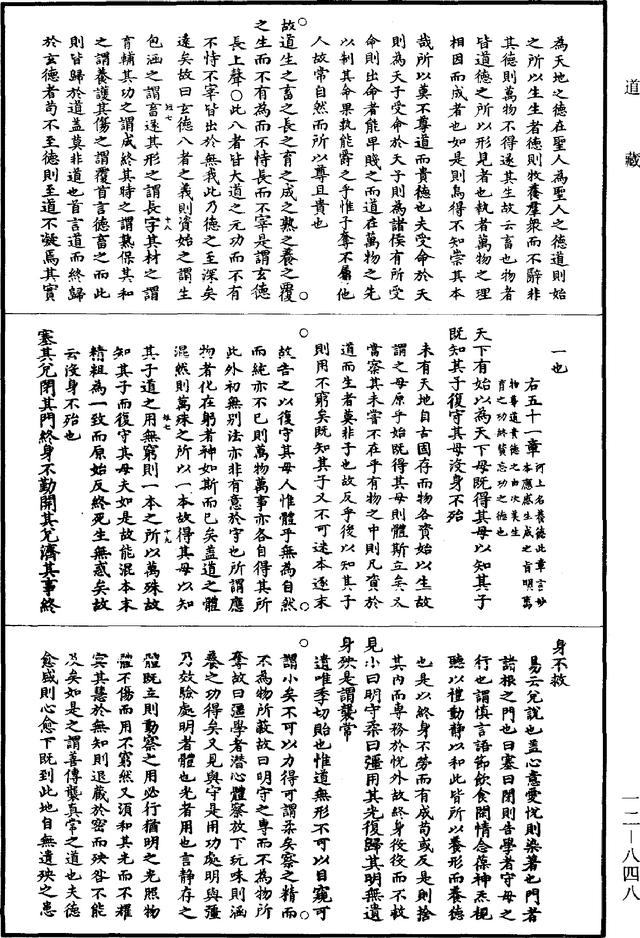 道藏
為天地之德在聖人為聖人之德道則始
之所以生生者德則牧養羣衆而不辭非
其德則萬物不得遂其生故云畜也物者
皆道德之所以形見者也執者萬物之理
相因而成者也如是則烏得不知崇其本
哉所以莫不尊道而貴德也夫受命於天
則為天子受命於天子則為諸侯有所受
命則出命者能卑賤之而道在萬物之先
以制其命果孰能爵之乎惟予奪不屬他
人故常自然而所以尊且貴也
故道生之畜之長之育之成之熟之養之覆
之生而不有為而不恃長而不宰是謂玄德
長上聲○此八者皆大道之元功而不有
不恃不宰皆出於無我此乃德之至深矣
遠矣故曰玄德八者之義則資始之謂生
包涵之謂畜遂其形之謂長字其材之謂
育輔其功之謂成終其時之謂熟保其和
之謂養護其傷之謂覆首言德畜之而此
則皆歸於道蓋莫非道也首言道而終歸
於玄德者苟不至德則至道不凝焉其實
一也
右五十一章
河上名養德此章言妙
本應感生成之旨明萬
物尊道貴德之由次美生
育之功終贊忘功之德也
天下有始以為天下母既得其母以知其子
既知其子復守其母沒身不殆
未有天地自古固存而物各資始以生故
謂之母原乎始既得其母則體斯立矣又
嘗察其未嘗不在乎有物之中則凡資於
道而生者莫非子也故反乎後以知其子
則用不窮矣既知其子又不可迷本逐末
故告之以復守其母人惟體乎無為自然
而純亦不已則萬物萬事亦各自得其所
此外初無別法亦非有意於字也所謂應
物者化在躬者神如斯而已矣蓋道之體
混然則萬殊之所以一本故得其母以知
其子道之用無窮則一本之所以萬殊故
知其子而復守其母夫如是故能混本末
精粗為一致而原始反終死生無惑矣故
云沒身不殆也
塞其兌閉其門終身不勤開其兌濟其事終
身不救
易云兌說也蓋心意愛悅則染著也門者
諸根之門也曰塞曰閉則告學者守母之
行也謂慎言語節飲食閑情念葆神炁視
聽以禮動靜以和此皆所以養形而養德
也是以終身不勞而有成苟或反是則捨
其內而專務於悅外故終身役役而不救
見小曰明守柔曰彊用其光復歸其明無遺
身殃是謂襲常
遺唯季切貽也惟道無形不可以目窺可
謂小矣不可以力得可謂柔矣察之精而
不為物所蔽故曰明守之專而不為物所
奪故曰彊學者潛心體察放下玩味則涵
養之功得矣又見與守是用功處明與彊
乃效驗處明者體也光者用也言靜存之
體既立則動察之用必行猶明之光照物
體不傷而用不窮然又須和其光而不耀
冥其慧於無知則退藏於密而殃咎不能
及矣如是之謂善傳襲真常之道也夫德
愈盛則心愈下既到此地自無遺殃之患
一二—八四八